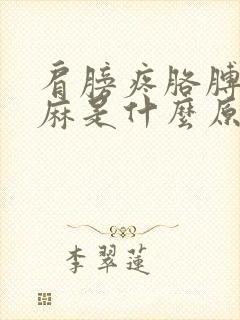 肩膀疼胳膊
麻是什麼原
李翠蓮